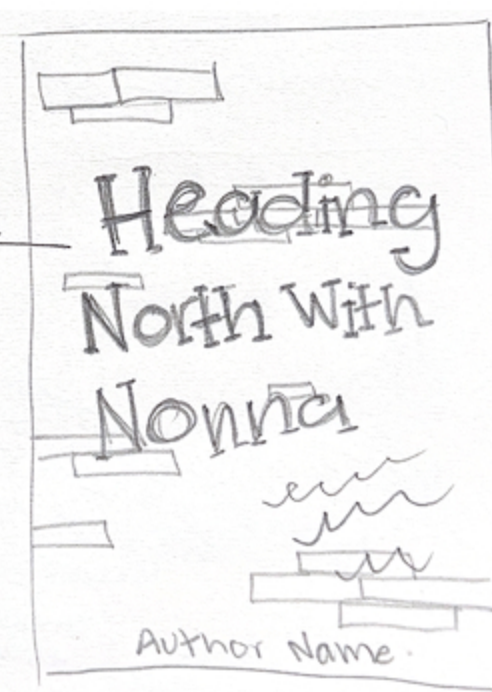 Heading
North With
Nonna
Author Name.